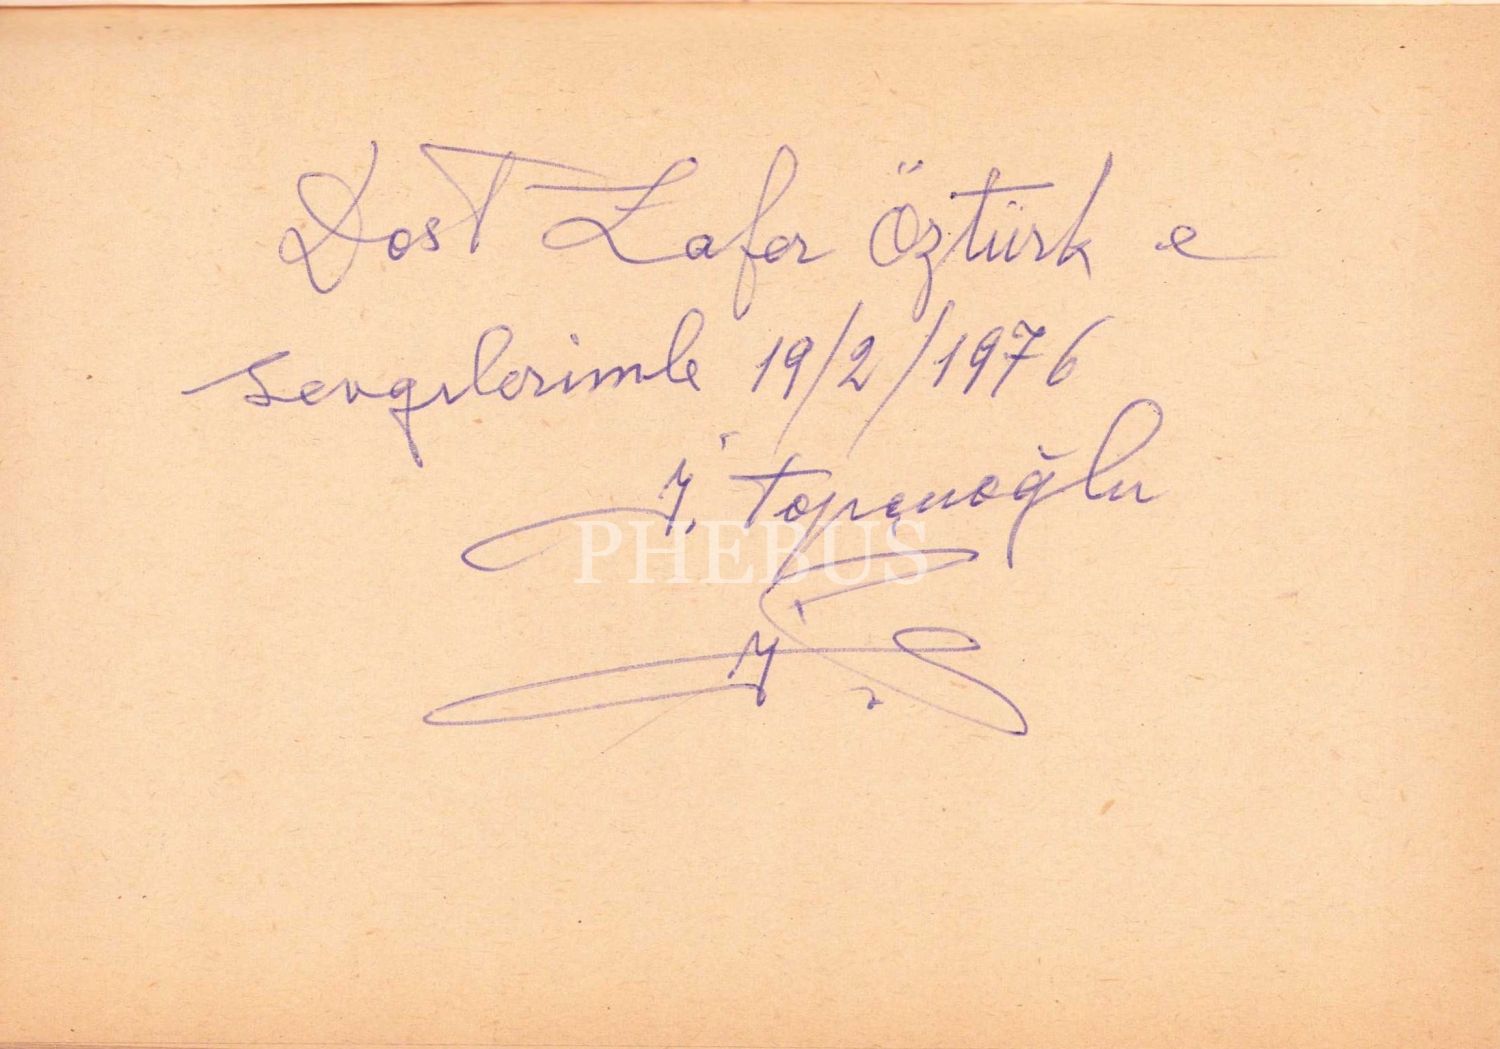 Dost Zafer Öztürk e
sevgilerimle 19/2/1976
İ. Topçuoğlu
PHEBUS